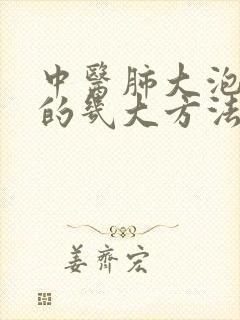 中醫肺大泡
的幾大方法
姜齊宏